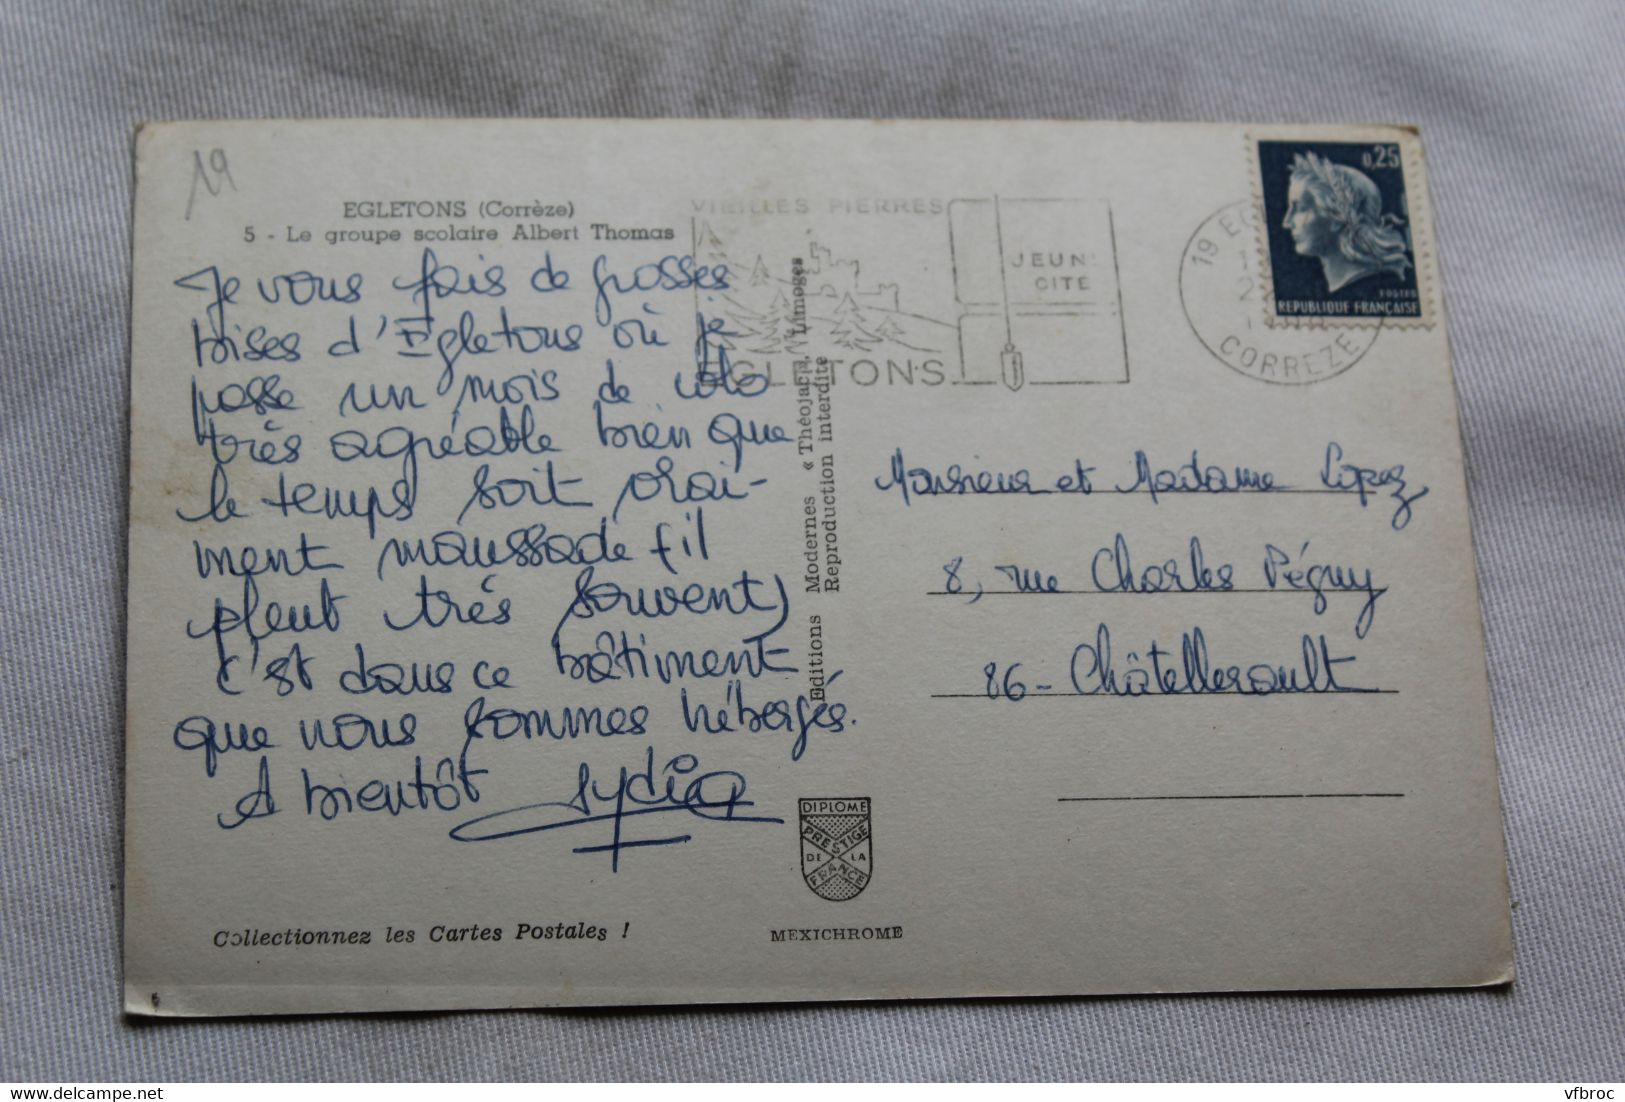 19
EGLETONS (Corrèze)
5 - Le groupe scolaire Albert Thomas
Je vous fais de grosses
bises d'Egletons où je
passe un mois de colo
très agréable bien que
le temps soit vrai-
ment maussade (il
pleut très souvent)
c'est dans ce bâtiment
que nous sommes hébergés.
A bientôt Lydia
Collectionnez les Cartes Postales !
Editions Modernes « Théojac », Limoges
Reproduction interdite
DIPLOME
PRESTIGE
DE LA
FRANCE
MEXICHROME
VIEILLES PIERRES
JEUN
CITÉ
EGLETONS
19 EG
CORREZE
0,25
POSTES
REPUBLIQUE FRANÇAISE
Monsieur et Madame Lopez
8, rue Charles Péguy
86 - Châtellerault
vfbroc